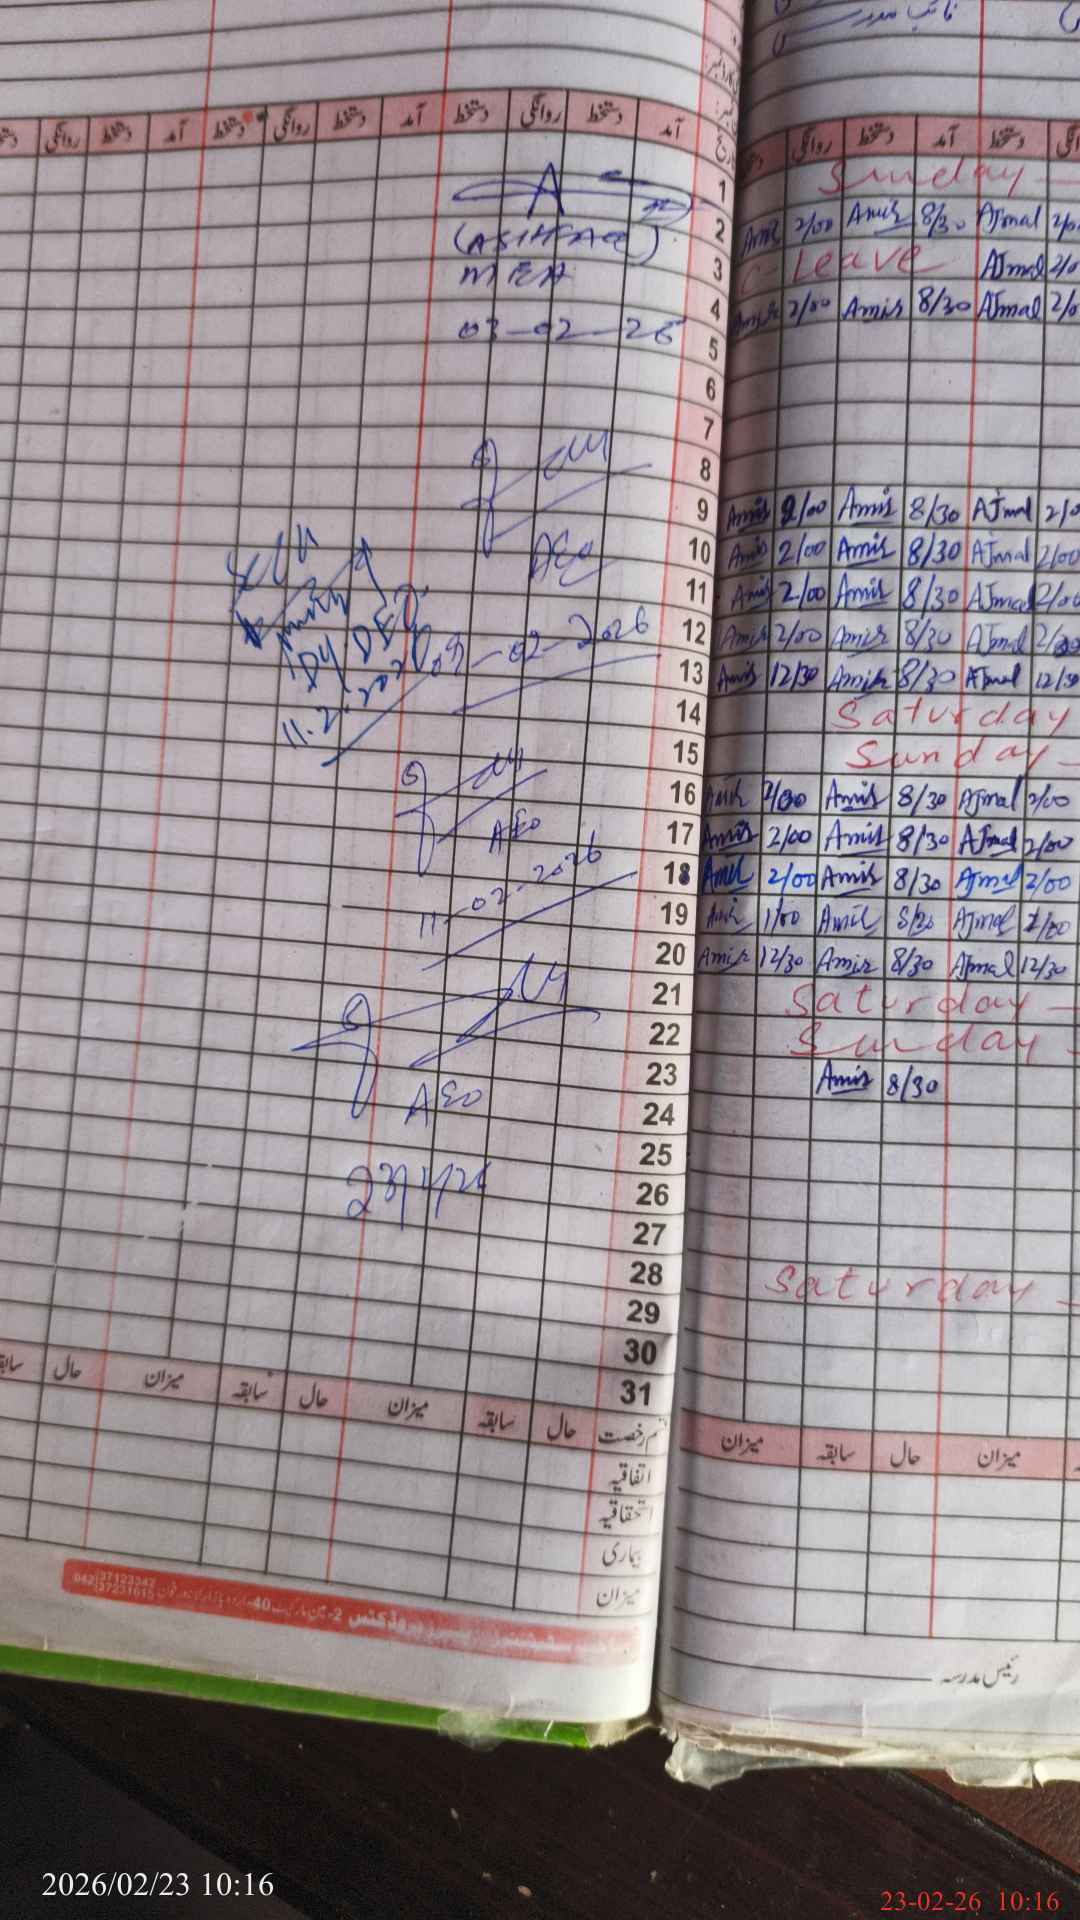 نائب مدرسہ
آمد دستخط روانگی دستخط آمد دستخط روانگی دستخط آمد دستخط روانگی
دستخط آمد دستخط روانگی
1 Sunday
2 Amir 2/00 Amir 8/30 Ajmal 2/0
3 C-Leave Ajmal 2/0
4 Amir 2/00 Amir 8/30 Ajmal 2/0
5
6
7
8
9 Amir 2/00 Amir 8/30 Ajmal 2/0
10 Amir 2/00 Amir 8/30 Ajmal 2/00
11 Amir 2/00 Amir 8/30 Ajmal 2/00
12 Amir 2/00 Amir 8/30 Ajmal 2/00
13 Amir 12/30 Amir 8/30 Ajmal 12/30
14 Saturday
15 Sunday
16 Amir 2/00 Amir 8/30 Ajmal 2/00
17 Amir 2/00 Amir 8/30 Ajmal 2/00
18 Amir 2/00 Amir 8/30 Ajmal 2/00
19 Amir 1/00 Amir 8/30 Ajmal 1/00
20 Amir 12/30 Amir 8/30 Ajmal 12/30
21 Saturday
22 Sunday
23 Amir 8/30
24
25
26
27
28 Saturday
29
30
31
(ASHFAQ)
MEA
03-02-26
AEO
09-02-2026
Dy DEO
11.2.202
AEO
11-02-2026
AEO
قسم رخصت حال سابقہ میزان حال سابقہ میزان حال
میزان حال سابقہ میزان
اتفاقیہ
استحقاقیہ
بیماری
میزان
042 37123342
37231615
رئیس مدرسہ
2026/02/23 10:16
23-02-26 10:16